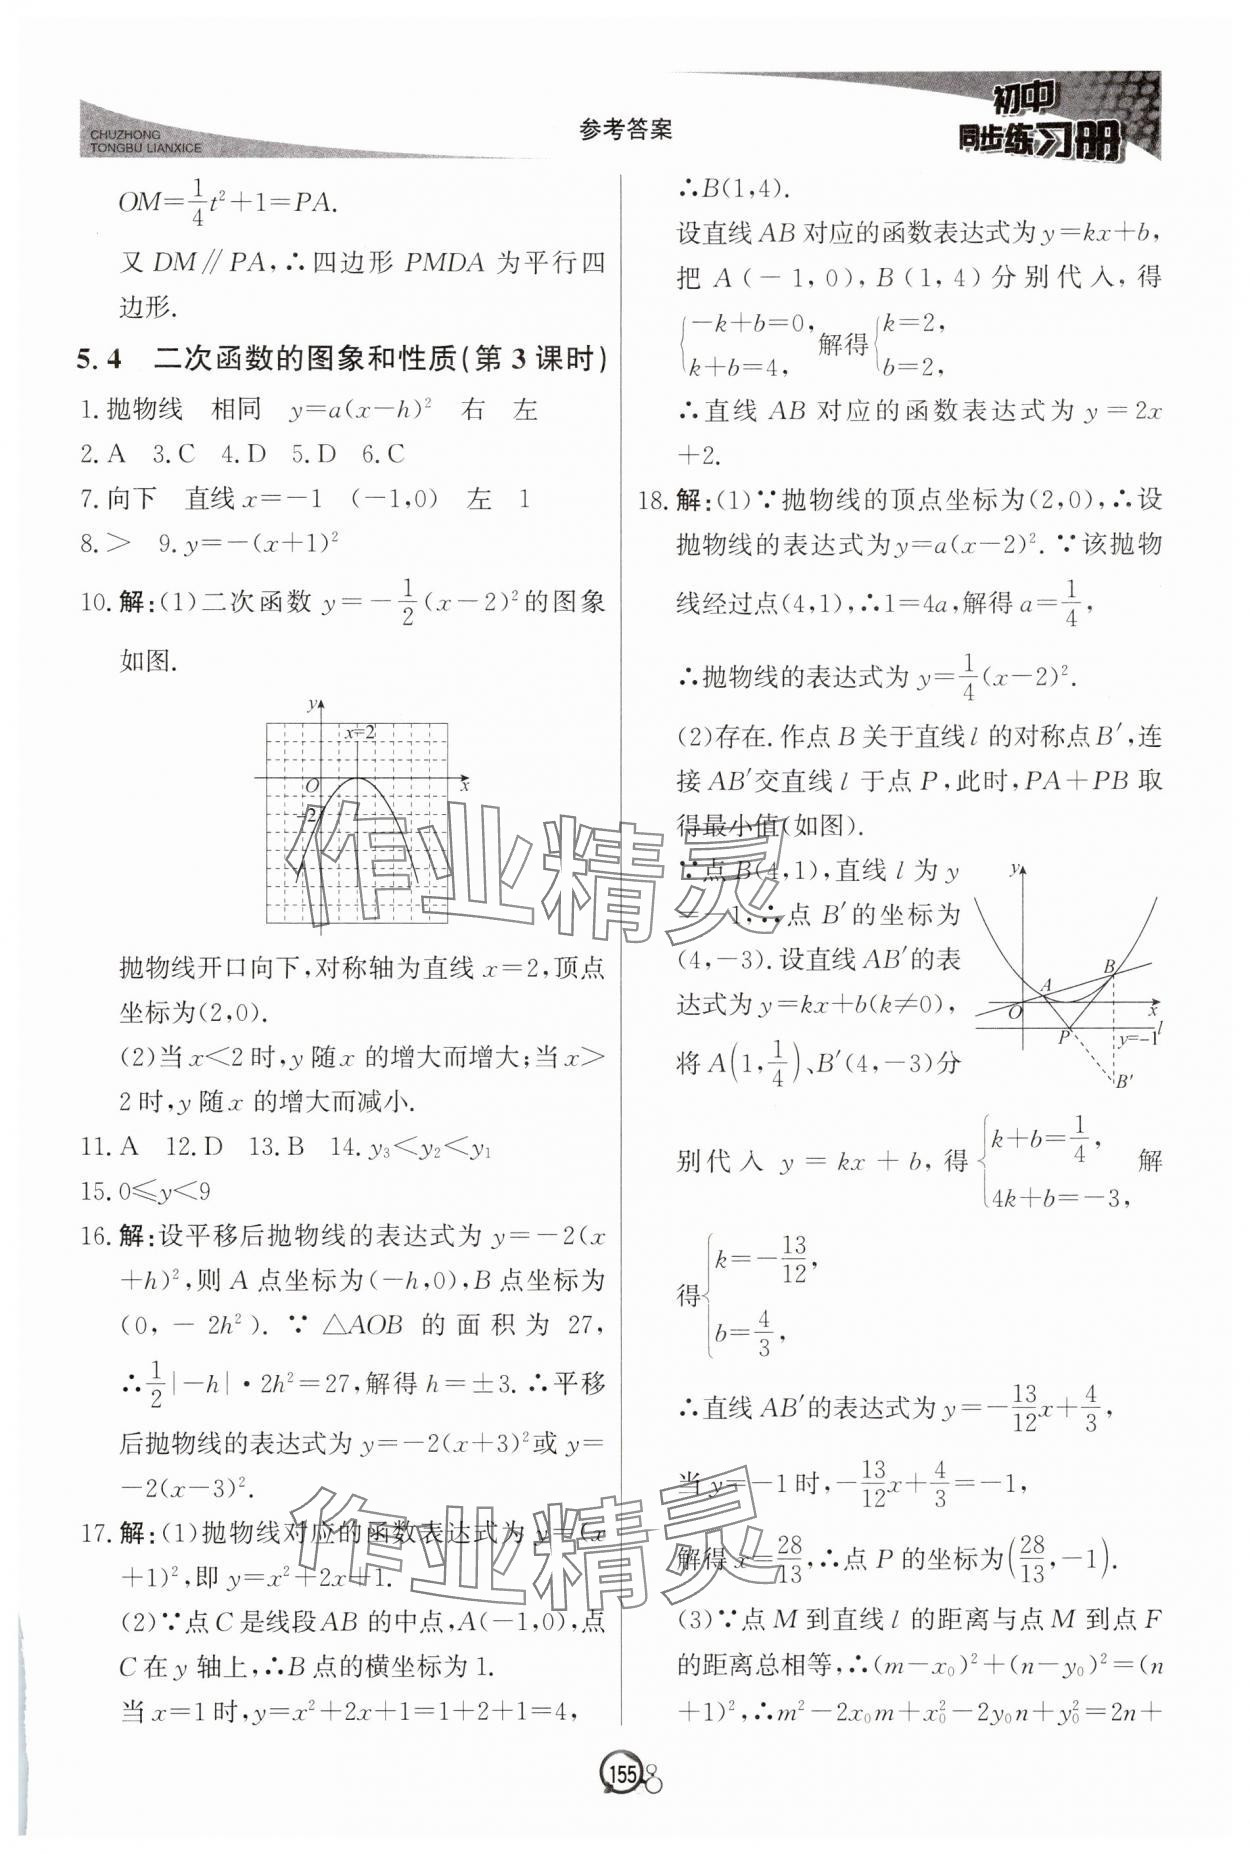 CHUZHONG
TONGBU LIANXICE
参考答案
初中
同步练习册
OM=\frac{1}{4}t²+1=PA.
又DM∥PA,∴四边形PMDA为平行四
边形.
5.4 二次函数的图象和性质(第3课时)
1.抛物线 相同 y=a(x-h)² 右 左
2.A 3.C 4.D 5.D 6.C
7.向下 直线x=-1 (-1,0) 左 1
8.> 9.y=-(x+1)²
10.解:(1)二次函数y=-\frac{1}{2}(x-2)²的图象
如图.
y
x=2
O
x
-2
抛物线开口向下,对称轴为直线x=2,顶点
坐标为(2,0).
(2)当x<2时,y随x的增大而增大;当x>
2时,y随x的增大而减小.
11.A 12.D 13.B 14.y₃<y₂<y₁
15.0≤y<9
16.解:设平移后抛物线的表达式为y=-2(x
+h)²,则A点坐标为(-h,0),B点坐标为
(0,-2h²).∵△AOB的面积为27,
∴\frac{1}{2}|-h|·2h²=27,解得h=±3.∴平移
后抛物线的表达式为y=-2(x+3)²或y=
-2(x-3)².
17.解:(1)抛物线对应的函数表达式为y=(x
+1)²,即y=x²+2x+1.
(2)∵点C是线段AB的中点,A(-1,0),点
C在y轴上,∴B点的横坐标为1.
当x=1时,y=x²+2x+1=1+2+1=4,
∴B(1,4).
设直线AB对应的函数表达式为y=kx+b,
把A(-1,0),B(1,4)分别代入,得
{-k+b=0, k+b=4, 解得{k=2, b=2,
∴直线AB对应的函数表达式为y=2x
+2.
18.解:(1)∵抛物线的顶点坐标为(2,0),∴设
抛物线的表达式为y=a(x-2)².∵该抛物
线经过点(4,1),∴1=4a,解得a=\frac{1}{4},
∴抛物线的表达式为y=\frac{1}{4}(x-2)².
(2)存在.作点B关于直线l的对称点B′,连
接AB′交直线l于点P,此时,PA+PB取
得最小值(如图).
∵点B(4,1),直线l为y
=-1,∴点B′的坐标为
(4,-3).设直线AB′的表
达式为y=kx+b(k≠0),
将A(1,\frac{1}{4})、B′(4,-3)分
y
A
B
O
x
P
y=-1
l
B′
别代入y=kx+b,得{k+b=\frac{1}{4}, 4k+b=-3, 解
得{k=-\frac{13}{12}, b=\frac{4}{3},
∴直线AB′的表达式为y=-\frac{13}{12}x+\frac{4}{3},
当y=-1时,-\frac{13}{12}x+\frac{4}{3}=-1,
解得x=\frac{28}{13},∴点P的坐标为(\frac{28}{13},-1).
(3)∵点M到直线l的距离与点M到点F
的距离总相等,∴(m-x₀)²+(n-y₀)²=(n
+1)²,∴m²-2x₀m+x₀²-2y₀n+y₀²=2n+
作业精灵
作业精灵
155